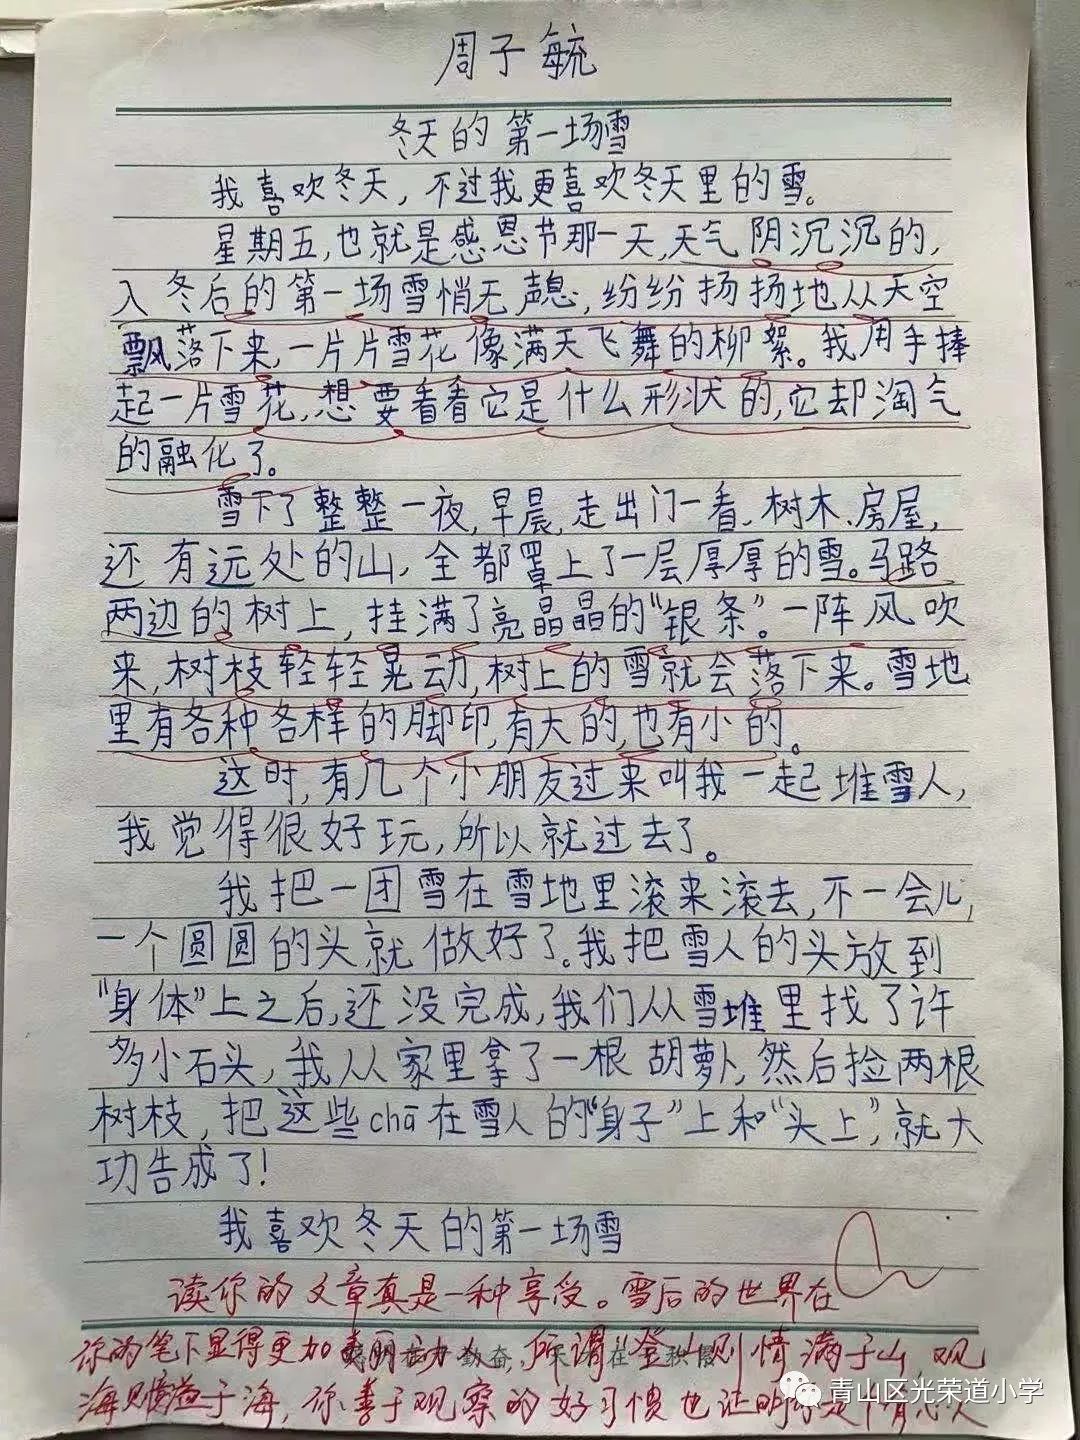 周子毓
冬天的第一场雪
我喜欢冬天，不过我更喜欢冬天里的雪。
星期五，也就是感恩节那一天，天气阴沉沉的，
入冬后的第一场雪悄无声息，纷纷扬扬地从天空
飘落下来，一片片雪花像满天飞舞的柳絮。我用手捧
起一片雪花，想要看看它是什么形状的，它却淘气
的融化了。
雪下了整整一夜，早晨，走出门一看，树木、房屋，
还有远处的山，全都罩上了一层厚厚的雪。马路
两边的树上，挂满了亮晶晶的“银条”。一阵风吹
来，树枝轻轻晃动，树上的雪就会落下来。雪地
里有各种各样的脚印，有大的，也有小的。
这时，有几个小朋友过来叫我一起堆雪人，
我觉得很好玩，所以就过去了。
我把一团雪在雪地里滚来滚去，不一会儿，
一个圆圆的头就做好了。我把雪人的头放到
“身体”上之后，还没完成，我们从雪堆里找了许
多小石头，我从家里拿了一根胡萝卜，然后捡两根
树枝，把这些chā在雪人的“身子”上和“头上”，就大
功告成了！
我喜欢冬天的第一场雪
读你的文章真是一种享受。雪后的世界在
你的笔下显得更加美丽动人，所谓登山则情满于山，观
海则情溢于海，你善于观察的好习惯也证明你是个有心人
青山区光荣道小学